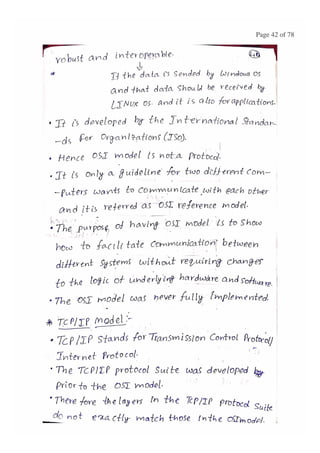 Page 42 of 78
robust and interoperable.
* If the data is sended by windows OS
and that data should be received by
LINUX OS. and it is also for applications.
• It is developed by the International Standar-
-ds for Organizations (ISO).
• Hence OSI model is not a Protocol.
• It is only a guideline for two different Com-
-Puters wants to Communicate with each other
and it is referred as OSI reference model.
• The purpose of having OSI model is to show
how to facilitate communication between
different Systems without requiring changes
to the logic of underlying hardware and software.
• The OSI model was never fully implemented.
* TCP/IP model:-
• TCP/IP Stands for Transmission Control Protocol/
Internet Protocol.
• The TCP/IP protocol Suite was developed
Prior to the OSI model.
• There fore the layers in the TCP/IP protocol Suite
do not exactly match those in the OSI model.